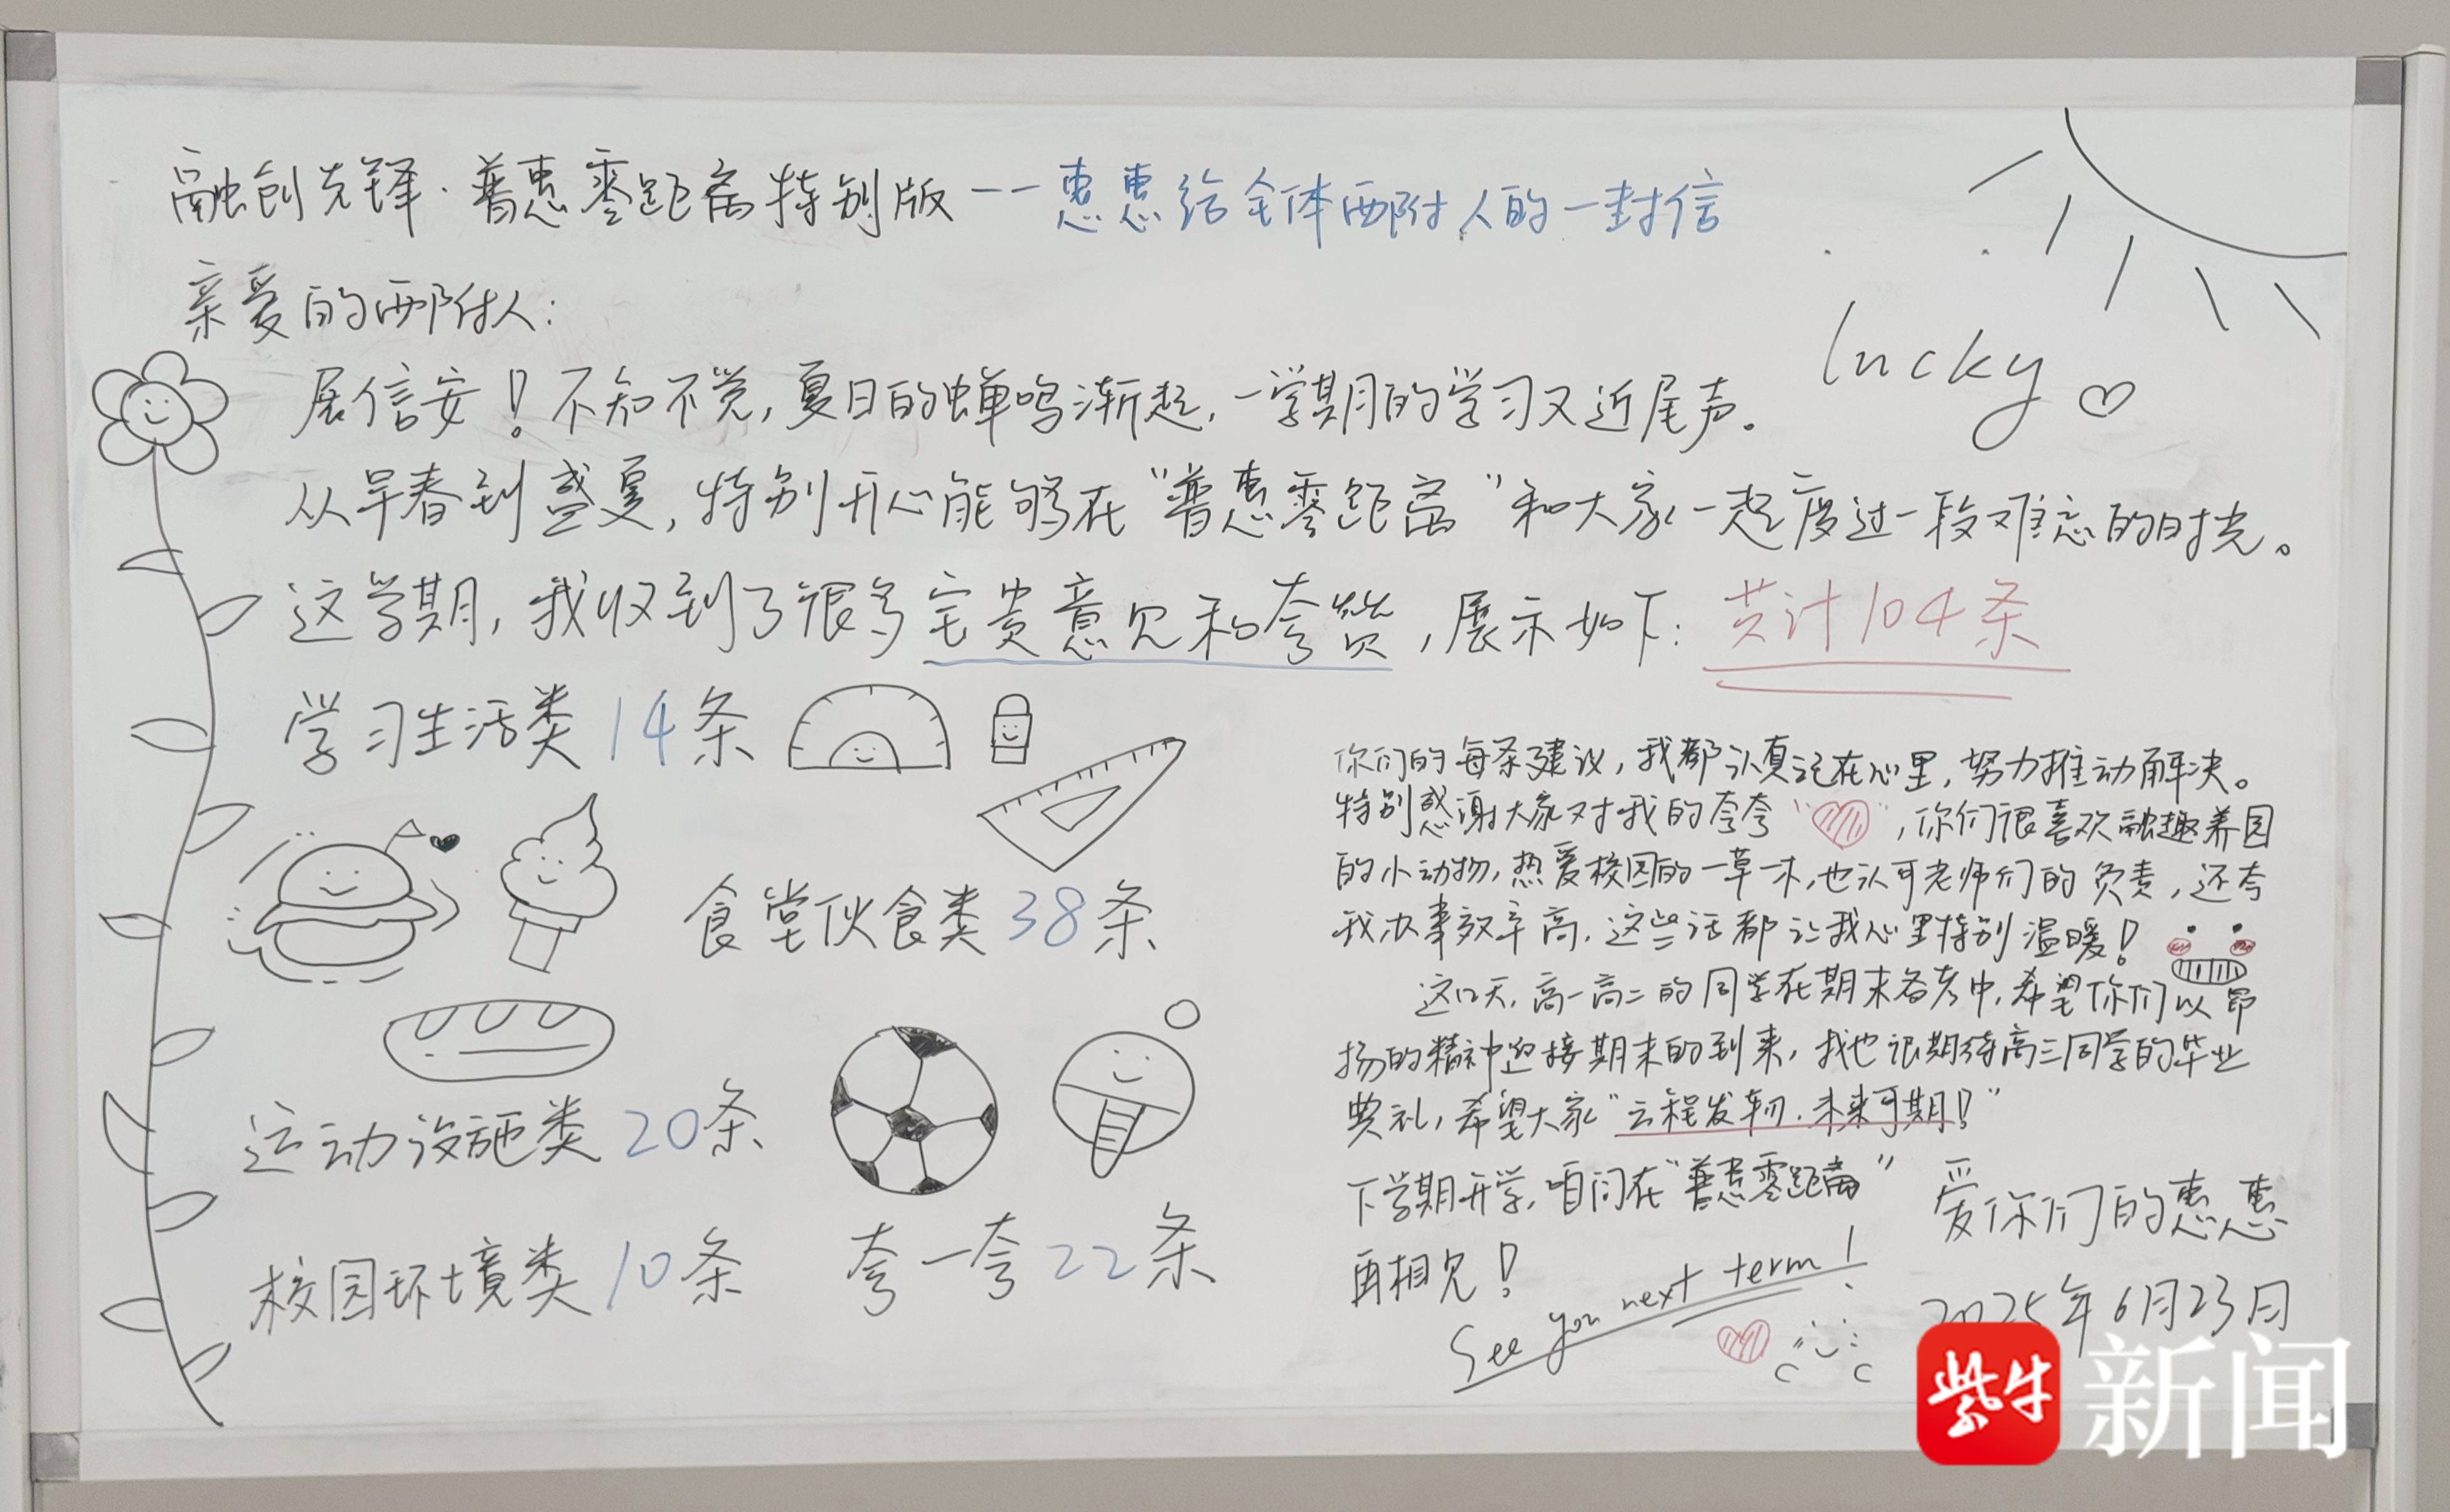 融创先锋·普惠零距离特别版——惠惠给全体西附人的一封信
亲爱的西附人：
lucky
展信安！不知不觉，夏日的蝉鸣渐起，一学期的学习又近尾声。
从早春到盛夏，特别开心能够在“普惠零距离”和大家一起度过一段难忘的时光。
这学期，我收到了很多宝贵意见和夸赞，展示如下：共计104条
学习生活类14条
食堂伙食类38条
运动设施类20条
校园环境类10条 夸一夸22条
你们的每条建议，我都认真记在心里，努力推动解决。
特别感谢大家对我的夸夸“ ”，你们很喜欢融趣养园
的小动物，热爱校园的一草一木，也认可老师们的负责，还夸
我办事效率高，这些话都让我心里特别温暖！
这几天，高一高二的同学在期末备考中，希望你们以昂
扬的精神迎接期末的到来，我也很期待高三同学的毕业
典礼，希望大家“云程发轫，未来可期！”
下学期开学，咱们在“普惠零距离”
再相见！
See you next term！
爱你们的惠惠
2025年6月23日
紫牛新闻